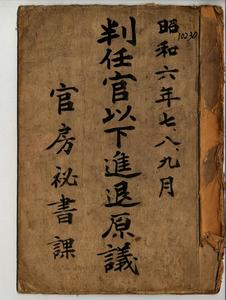 昭和六年七、八、九月
10230
判任官以下進退原議
官房祕書課